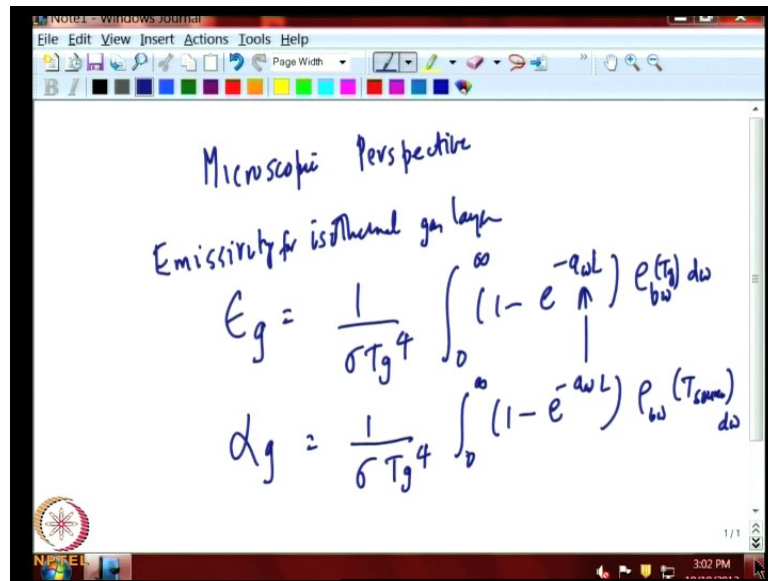 Note1 - Windows Journal
File Edit View Insert Actions Tools Help
Page Width
B I
Microscopic Perspective
Emissivity for isothermal gas layer
εg = 1/σTg⁴ ∫₀^∞ (1 - e^(-aωL)) e_bω(Tg) dω
αg = 1/σTg⁴ ∫₀^∞ (1 - e^(-aωL)) e_bω(Tsource) dω
1/1
NPTEL
3:02 PM